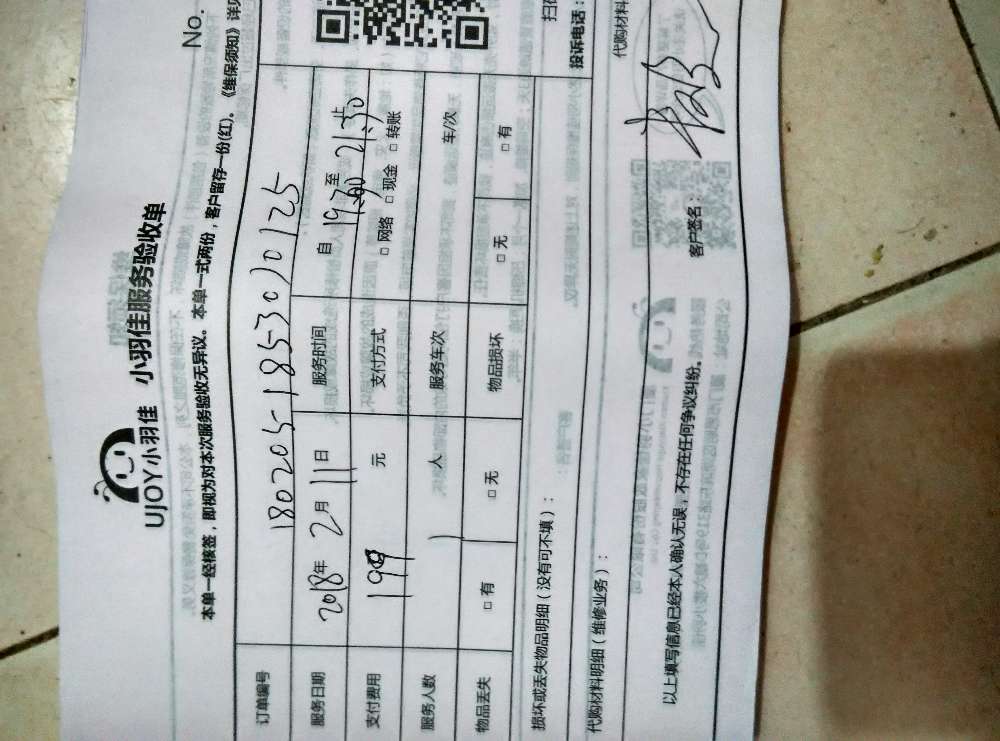 No.
UJOY小羽佳 小羽佳服务验收单
本单一经核签，即视为对本次服务验收无异议。本单一式两份，客户留存一份(红)。《维保须知》详
订单编号 180205-1853010125
服务日期 2018年 2月 11日 服务时间 自 19:30 至 21:30 止
支付费用 199 元 支付方式 □ 网络 □ 现金 □ 转账
服务人数 1 人 服务车次 车/次
物品丢失 □ 有 □ 无 物品损坏 □ 无 □ 有
损坏或丢失物品明细（没有可不填）：
投诉电话：
扫
代购材料明细（维修业务）：
代购材料
以上填写信息已经本人确认无误，不存在任何争议纠纷。 客户签名：